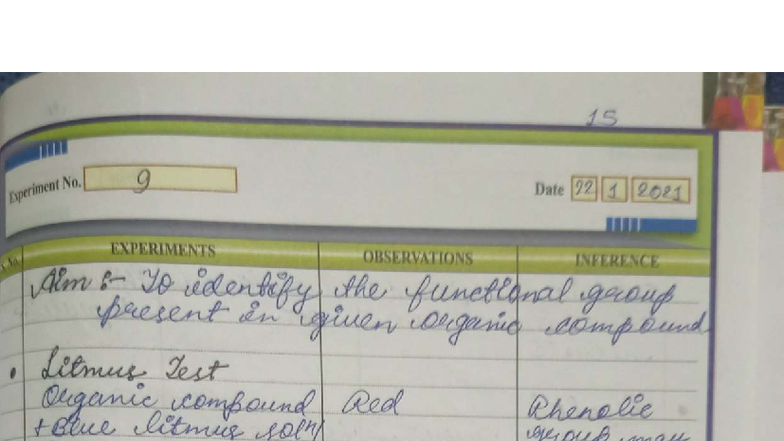 15
Experiment No. 9
Date 22 1 2021
S.No. EXPERIMENTS OBSERVATIONS INFERENCE
Aim :- To identify the functional group
present in given organic compound
• Litmus Test
Organic compound Red Phenolic
+ Blue litmus soln group may